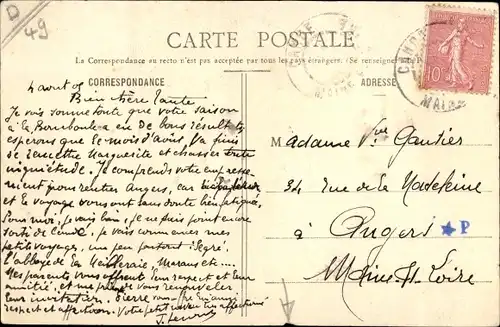 D
49
CARTE POSTALE
La Correspondance au recto n'est pas acceptée par tous les pays étrangers. (Se renseigner
CORRESPONDANCE
ADRESSE
4 août 05
Bien chère Tante
Je vois somme toute que votre saison
à la Bourboule a eu de bons résultats
esperons que le mois d'août, va finir
de Marguerite et chasser toute
inquiétude. Je comprends votre
pour rentrer Angers, car
et le voyage vous ont sans doute bien fatiguée.
Pour moi, je vais bien, je ne suis point encore
sorti de Candé. Je vais commencer mes
petits voyages, un peu partout: Segré,
l'abbaye de La Meilleraie, Marans etc...
Mes parents vous offrent leur respect et leur
amitié, et me de vous renouveler
leur invitation. Pierre vous
respect et affection. Votre petit neveu affectionné
Madame Vve Gautier
34 rue de la Madeleine
à Angers
P
Maine-et-Loire
10
MAINE